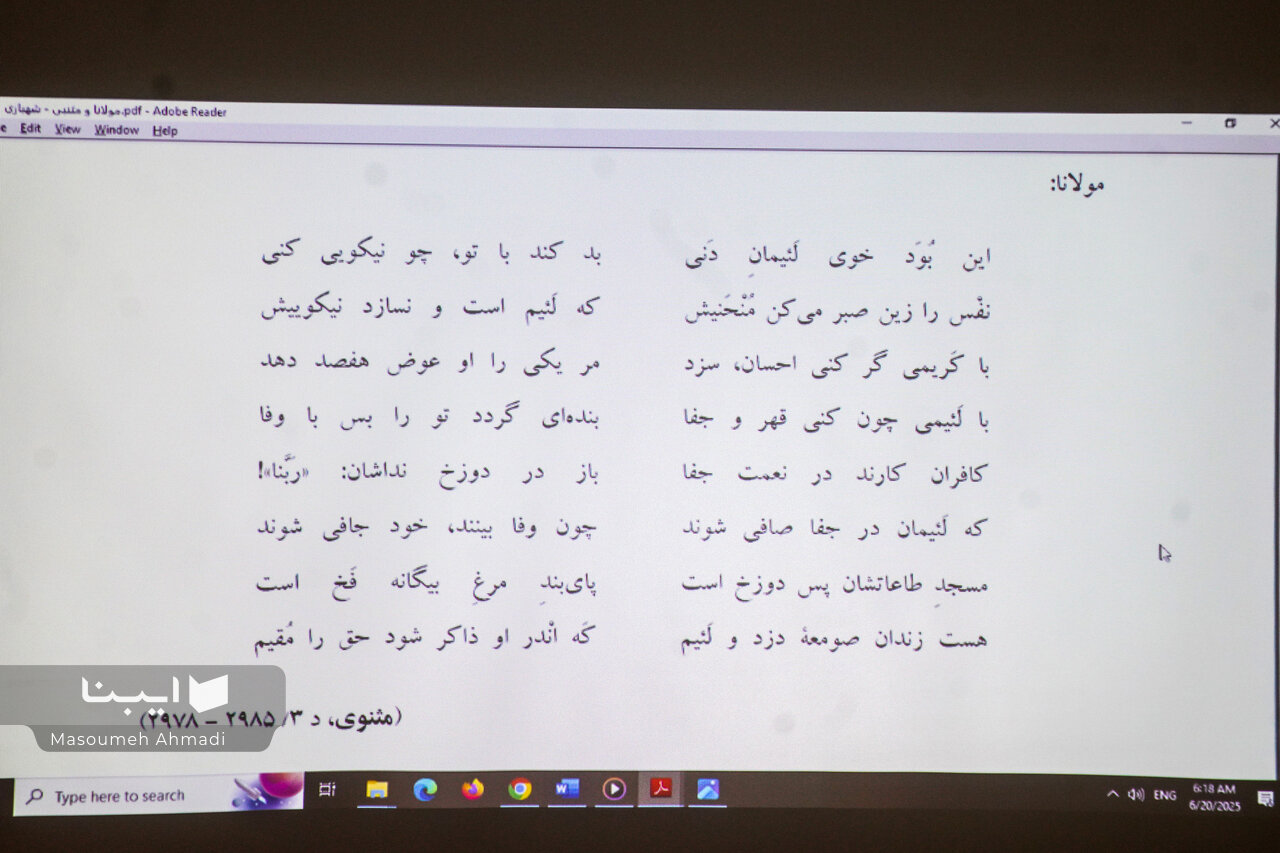 مولانا و متنبی - شهبازی.pdf - Adobe Reader
e Edit View Window Help
مولانا:
این بُوَد خوی لَئیمانِ دَنی بد کند با تو، چو نیکویی کنی
نفْس را زین صبر می‌کن مُنْحَنیش که لَئیم است و نسازد نیکوییش
با کَریمی گر کنی احسان، سزد مر یکی را او عوض هفصد دهد
با لَئیمی چون کنی قهر و جفا بنده‌ای گردد تو را بس با وفا
کافران کارند در نعمت جفا باز در دوزخ نداشان: «رَبَّنا»!
که لَئیمان در جفا صافی شوند چون وفا بینند، خود جافی شوند
مسجدِ طاعاتشان پس دوزخ است پای‌بندِ مرغِ بیگانه فَخ است
هست زندان صومعهٔ دزد و لَئیم کَه انْدر او ذاکر شود حق را مُقیم
(مثنوی، د ۳/ ۲۹۸۵ – ۲۹۷۸)
ایبنا
Masoumeh Ahmadi
Type here to search
ENG
6:18 AM
6/20/2025